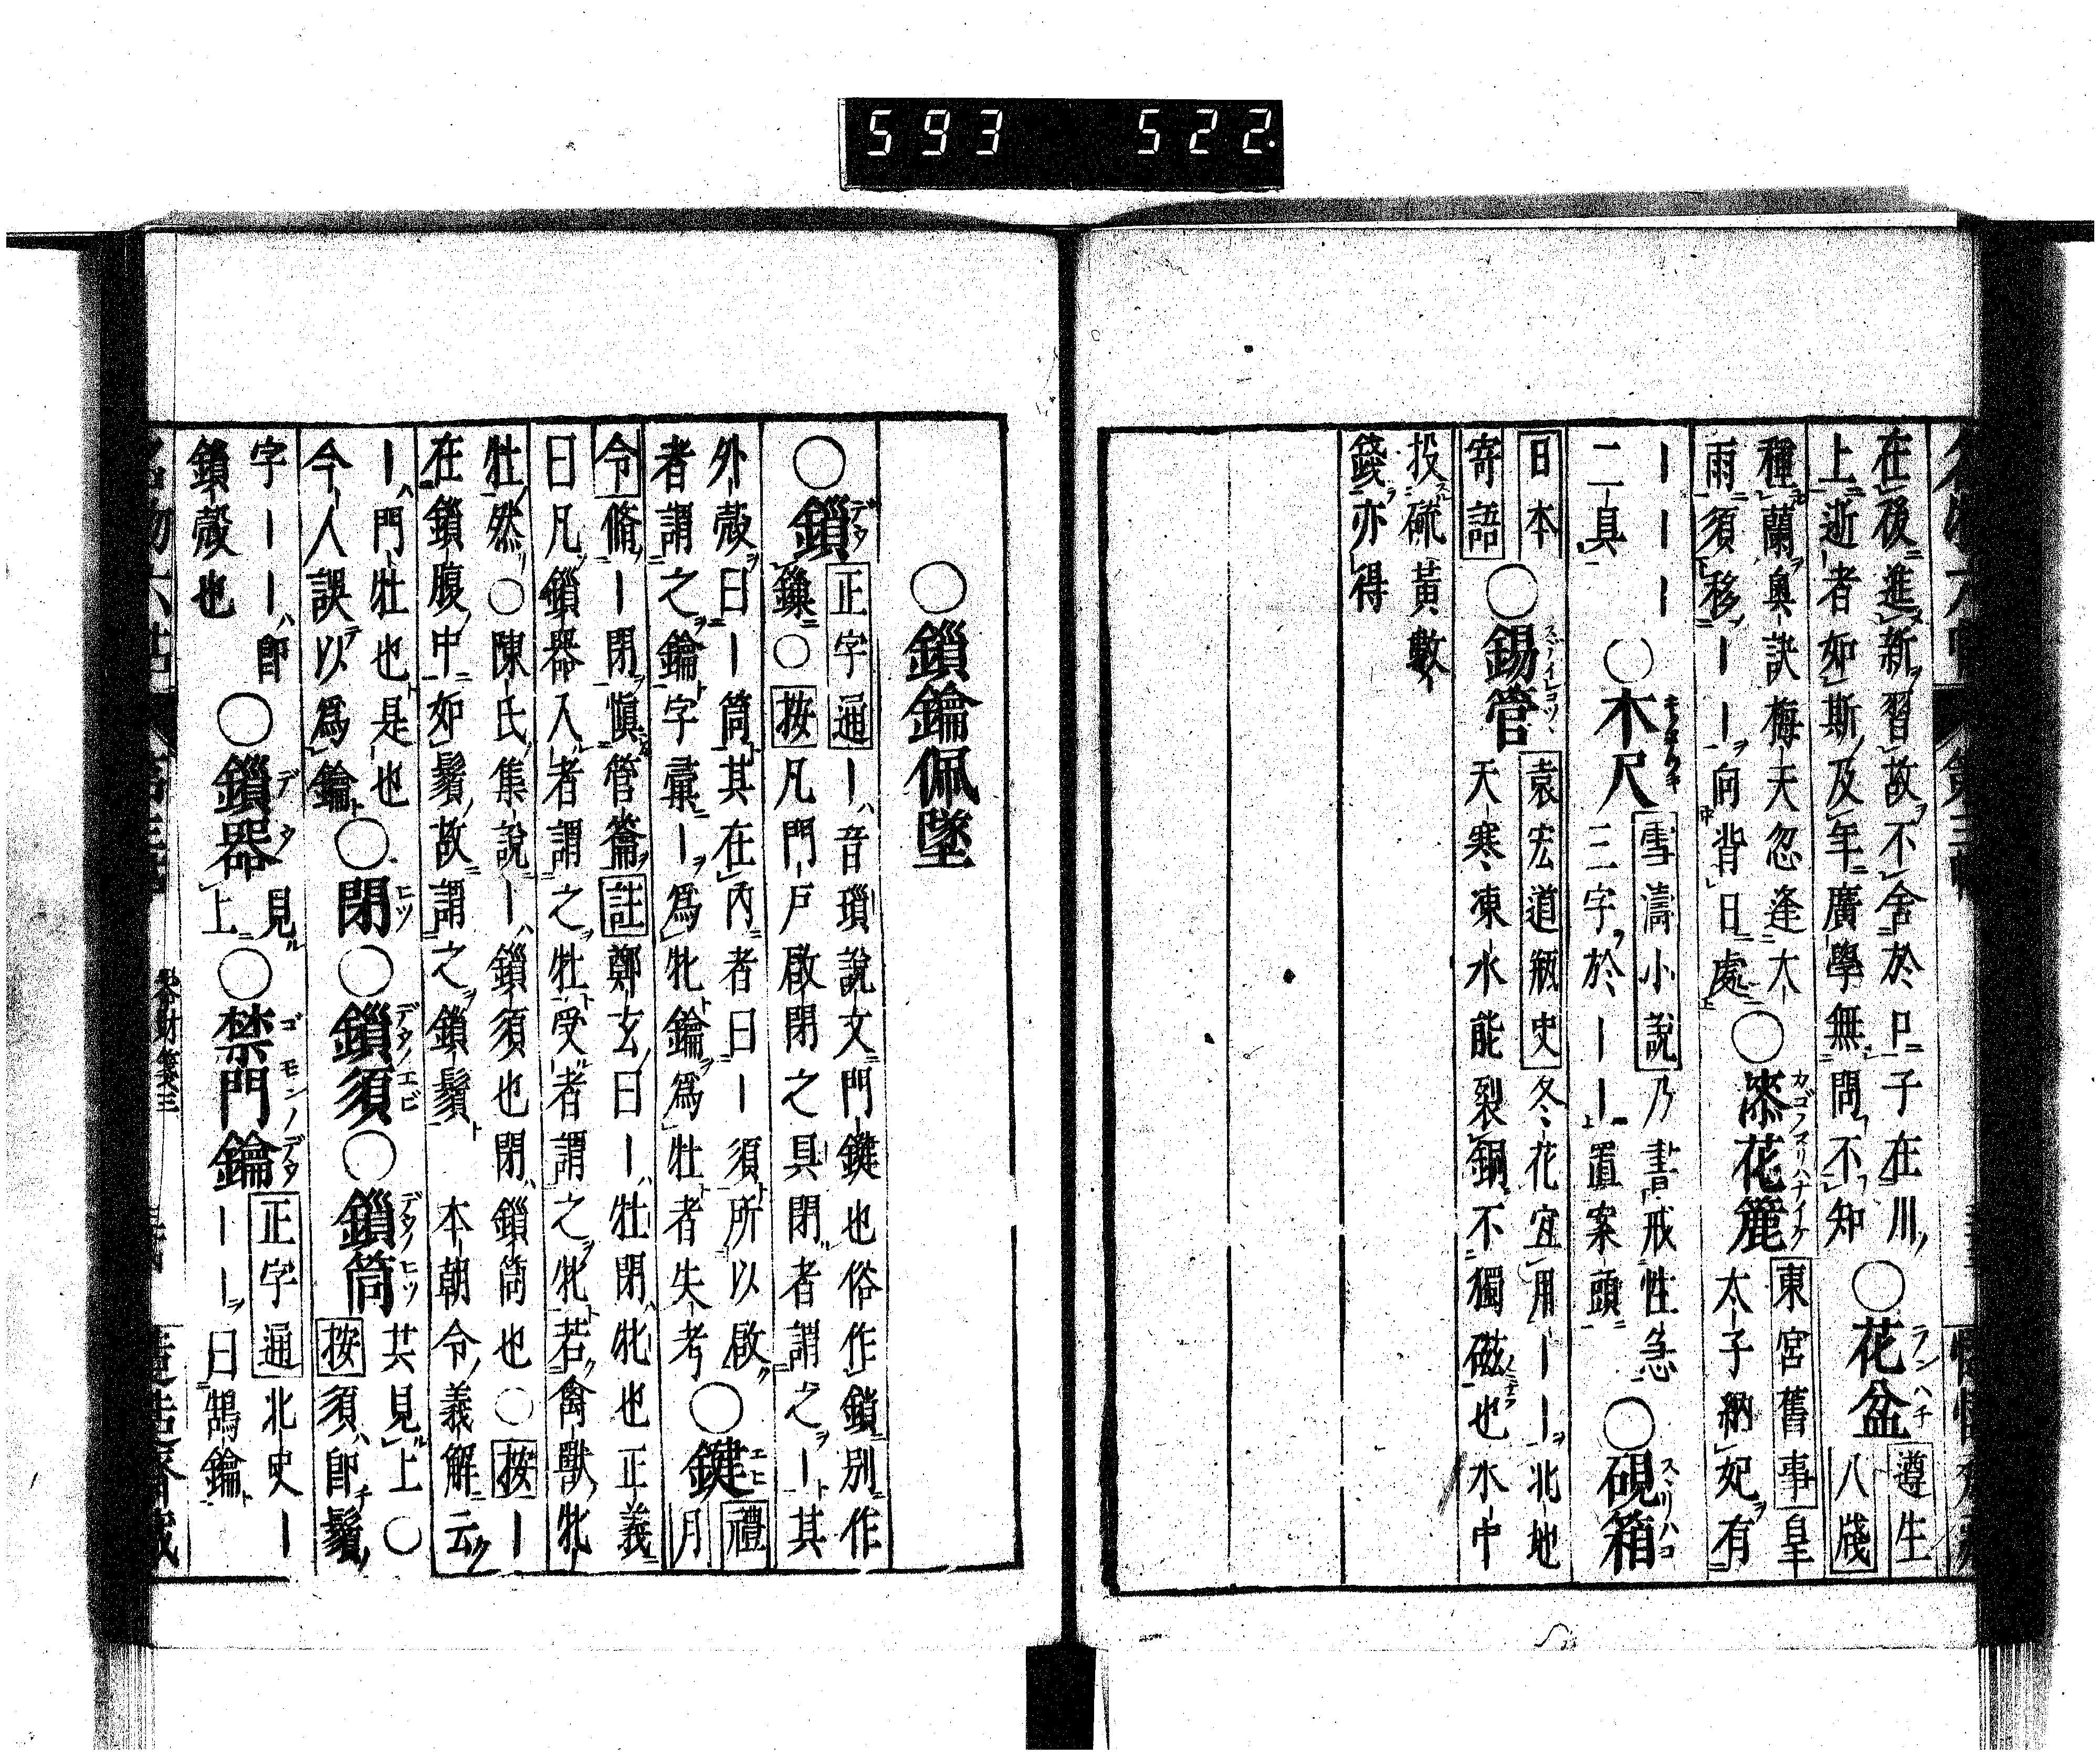 593 522
在後進新習故不舍於口子在川
上逝者如斯及年廣學無問不知
○花盆 ランハチ
遵生
八牋
種蘭奥訣梅天忽逢大
雨須移｜｜向背日處
○漆花籠 カゴノヌリハナイケ
東宮舊事皇
太子納妃有
｜｜｜
二具
○木尺
雪濤小說乃書戒性急
三字於｜｜置案頭
○硯箱 スヾリハコ
日本
寄語
○錫管
袁宏道瓶史冬花宜用｜｜北地
天寒凍水能裂銅不獨磁也水中
投硫黃數
錢亦得
○鎖鑰佩墜
○鎖 デタ
正字通｜音瑣說文門鍵也俗作鎖別作
鏁○按凡門戸啟閉之具閉者謂之｜其
外殼曰｜筒其在内者曰｜須所以啟
者謂之鑰字彙｜爲牝鑰爲牡者失考
○鍵 エヒ
禮
月
令脩｜閉愼管籥註鄭玄曰｜牡閉牝也正義
曰凡鎖器入者謂之牡受者謂之牝若禽獸牝
牡然○陳氏集說｜鎖須也閉鎖筒也○按｜
在鎖腹中如鬚故謂之鎖鬚 本朝令義解云
｜門牡也是也
今人誤以爲鑰
○閉 ヒツ
○鎖須 デタノエビ
○鎖筒 デタノヒツ
共見上○
按須即鬚
字｜｜即
鎖殼也
○鎖器 デタ
見
上
○禁門鑰 ゴモンノデタ
正字通北史｜
｜｜曰鵠鑰